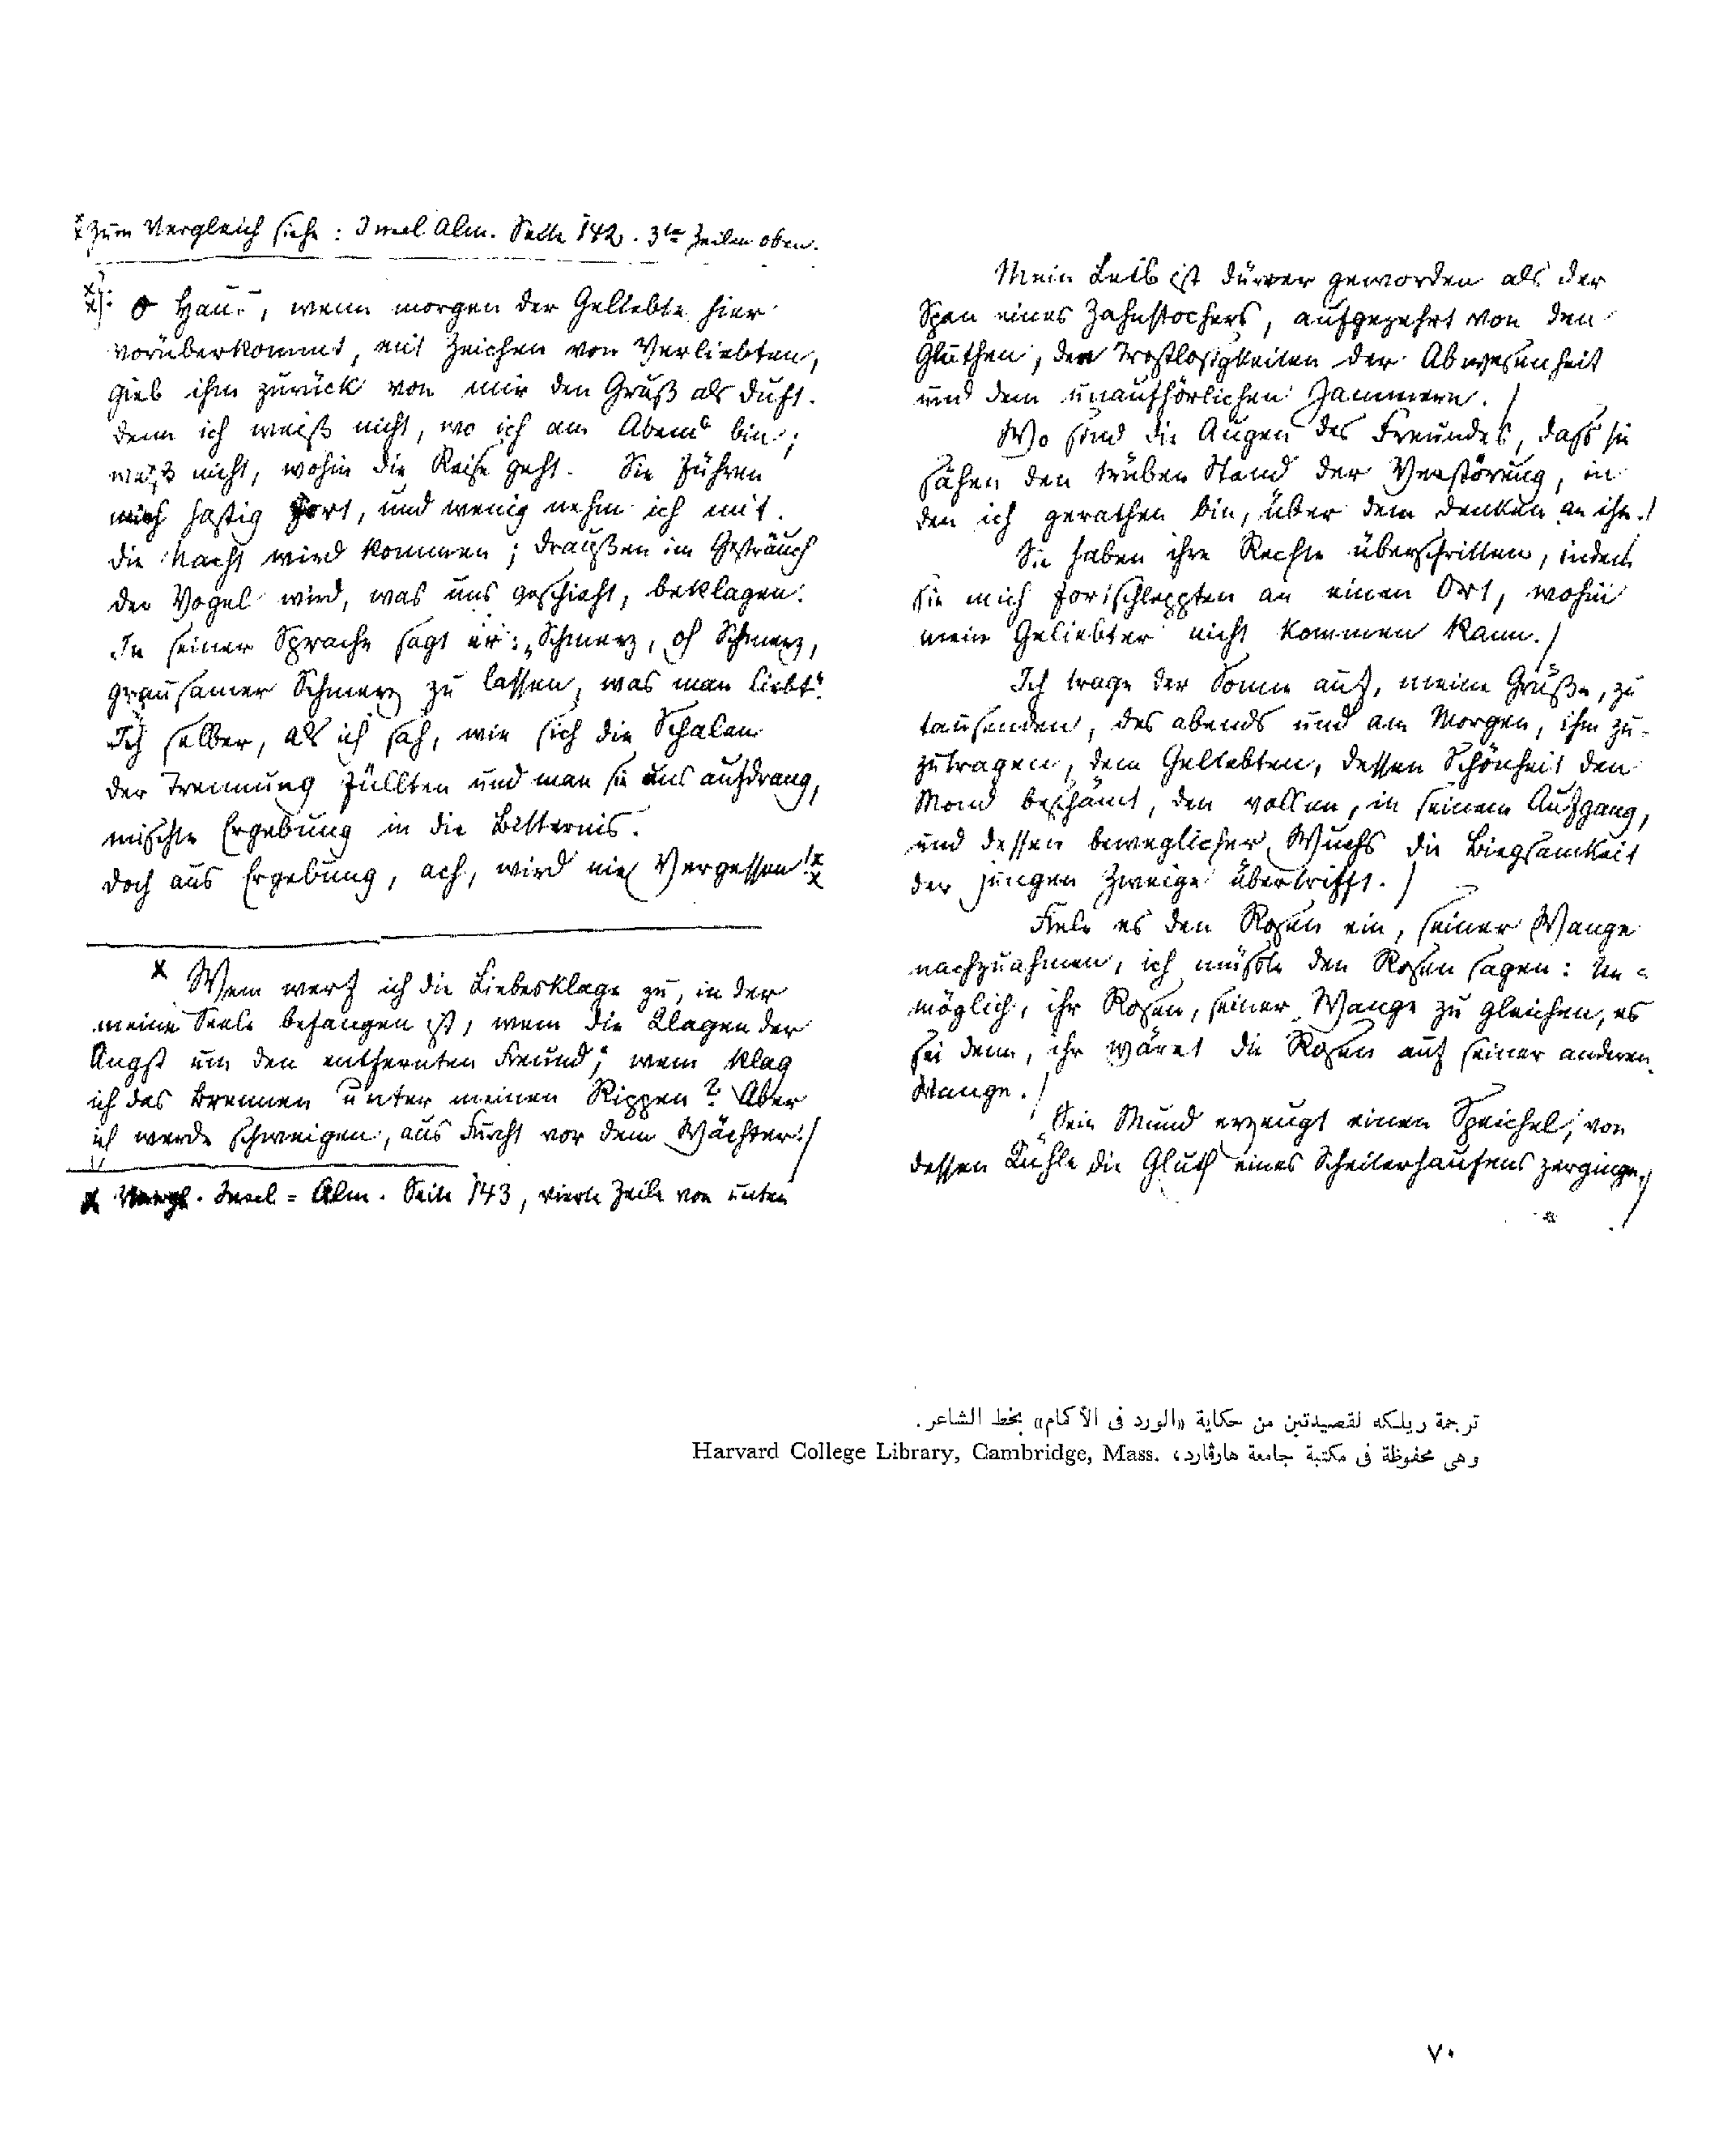 Zum Vergleich siehe: Insel Alm. Seite 142. 3te Zeile von oben.
O Haus, wenn morgen der Geliebte hier
vorüberkommt, mit Zeichen von Verliebten,
gieb ihm zurück von mir den Gruß als Duft.
denn ich weiß nicht, wo ich am Abend bin;
weiß nicht, wohin die Reise geht. Sie führen
mich hastig fort, und wenig nehm ich mit.
die Nacht wird kommen; draußen im Gesträuch
der Vogel wird, was uns geschieht, beklagen.
In seiner Sprache sagt er: „Schmerz, oh Schmerz,
grausamer Schmerz zu lassen, was man liebt“.
Ich selber, als ich sah, wie sich die Schalen
der Trennung füllten und man sie uns aufdrang,
mischte Ergebung in die Bitternis.
doch aus Ergebung, ach, wird nie Vergessen!
x Wem werf ich die Liebesklage zu, in der
meine Seele befangen ist, wem die Klagen der
Angst um den entfernten Freund; wem klag
ich das Brennen unter meinen Rippen? Aber
ich werde schweigen, aus Furcht vor dem Wächter. /
x Vergl. Insel = Alm. Seite 143, vierte Zeile von unten
Mein Leib ist dürrer geworden als der
Span eines Zahnstochers, aufgezehrt von den
Gluthen, den Trostlosigkeiten der Abwesenheit
und dem unaufhörlichen Jammern. /
Wo sind die Augen des Freundes, dass sie
sähen den trüben Stand der Verstörung, in
den ich gerathen bin, über dem Denken an ihn. /
Sie haben ihre Rechte überschritten, indem
sie mich fortschleppten an einen Ort, wohin
mein Geliebter nicht kommen kann. /
Ich trage der Sonne auf, meine Grüße, zu
tausenden, des abends und am Morgen, ihm zu-
zutragen, dem Geliebten, dessen Schönheit den
Mond beschämt, den vollen, in seinem Aufgang,
und dessen beweglicher Wuchs die Biegsamkeit
der jungen Zweige übertrifft. /
Fiele es den Rosen ein, seiner Wange
nachzuahmen, ich müßte den Rosen sagen: Un=
möglich, ihr Rosen, seiner Wange zu gleichen, es
sei denn, ihr wäret die Rosen auf seiner anderen
Wange. /
Sein Mund erzeugt einen Speichel, von
dessen Kühle die Gluth eines Scheiterhaufens zerginge. /
ترجمة ريلكه لقصيدتين من حكاية «الورد فى الأكمام» بخط الشاعر.
وهى محفوظة فى مكتبة جامعة هارڤارد، Harvard College Library, Cambridge, Mass.
٧٠